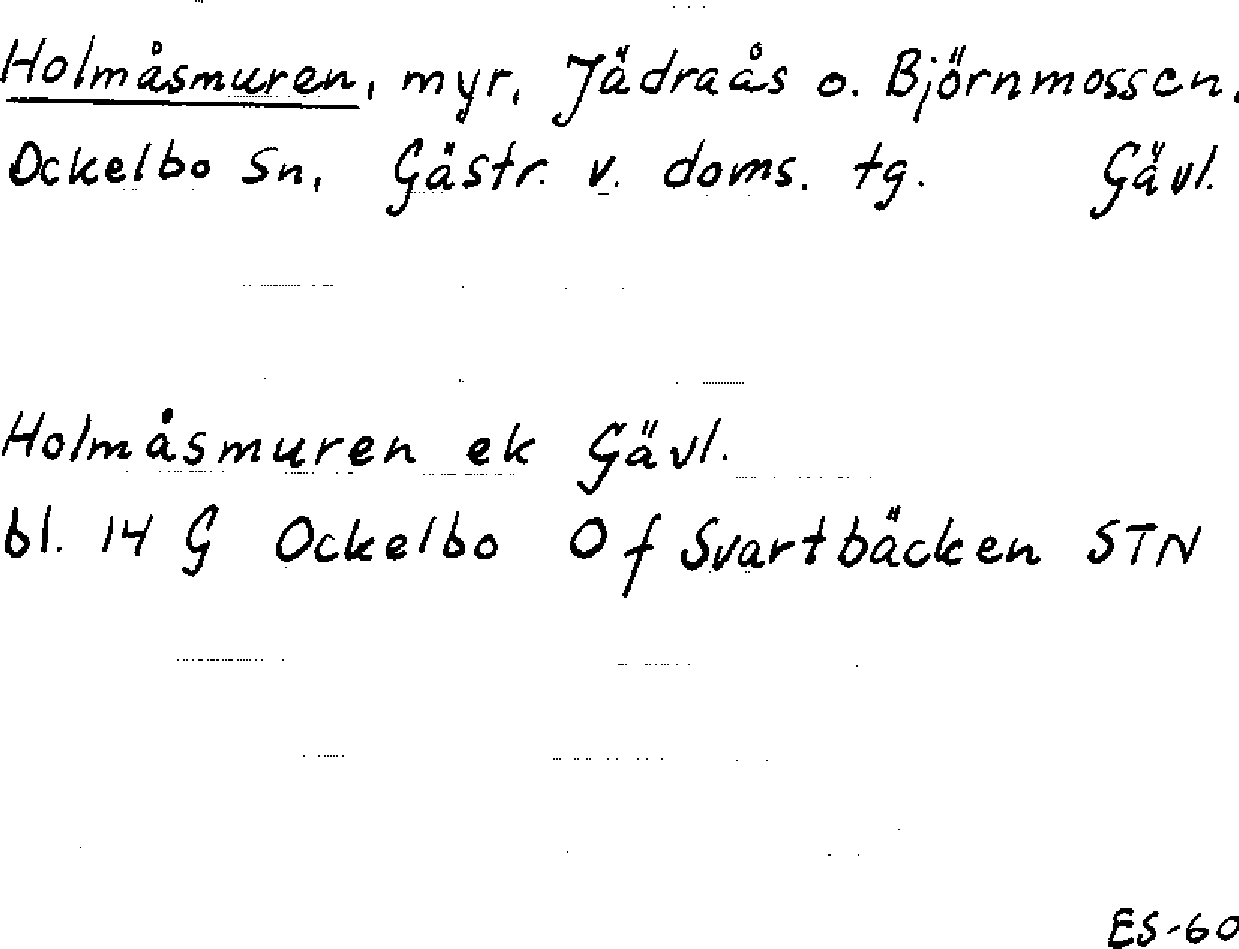 Holmåsmuren, myr, Jädraås o. Björnmossen,
Ockelbo Sn, Gästr. v. doms. tg. Gävl.
Holmåsmuren ek Gävl.
bl. 14 G Ockelbo O f Svartbäcken STN
ES-60